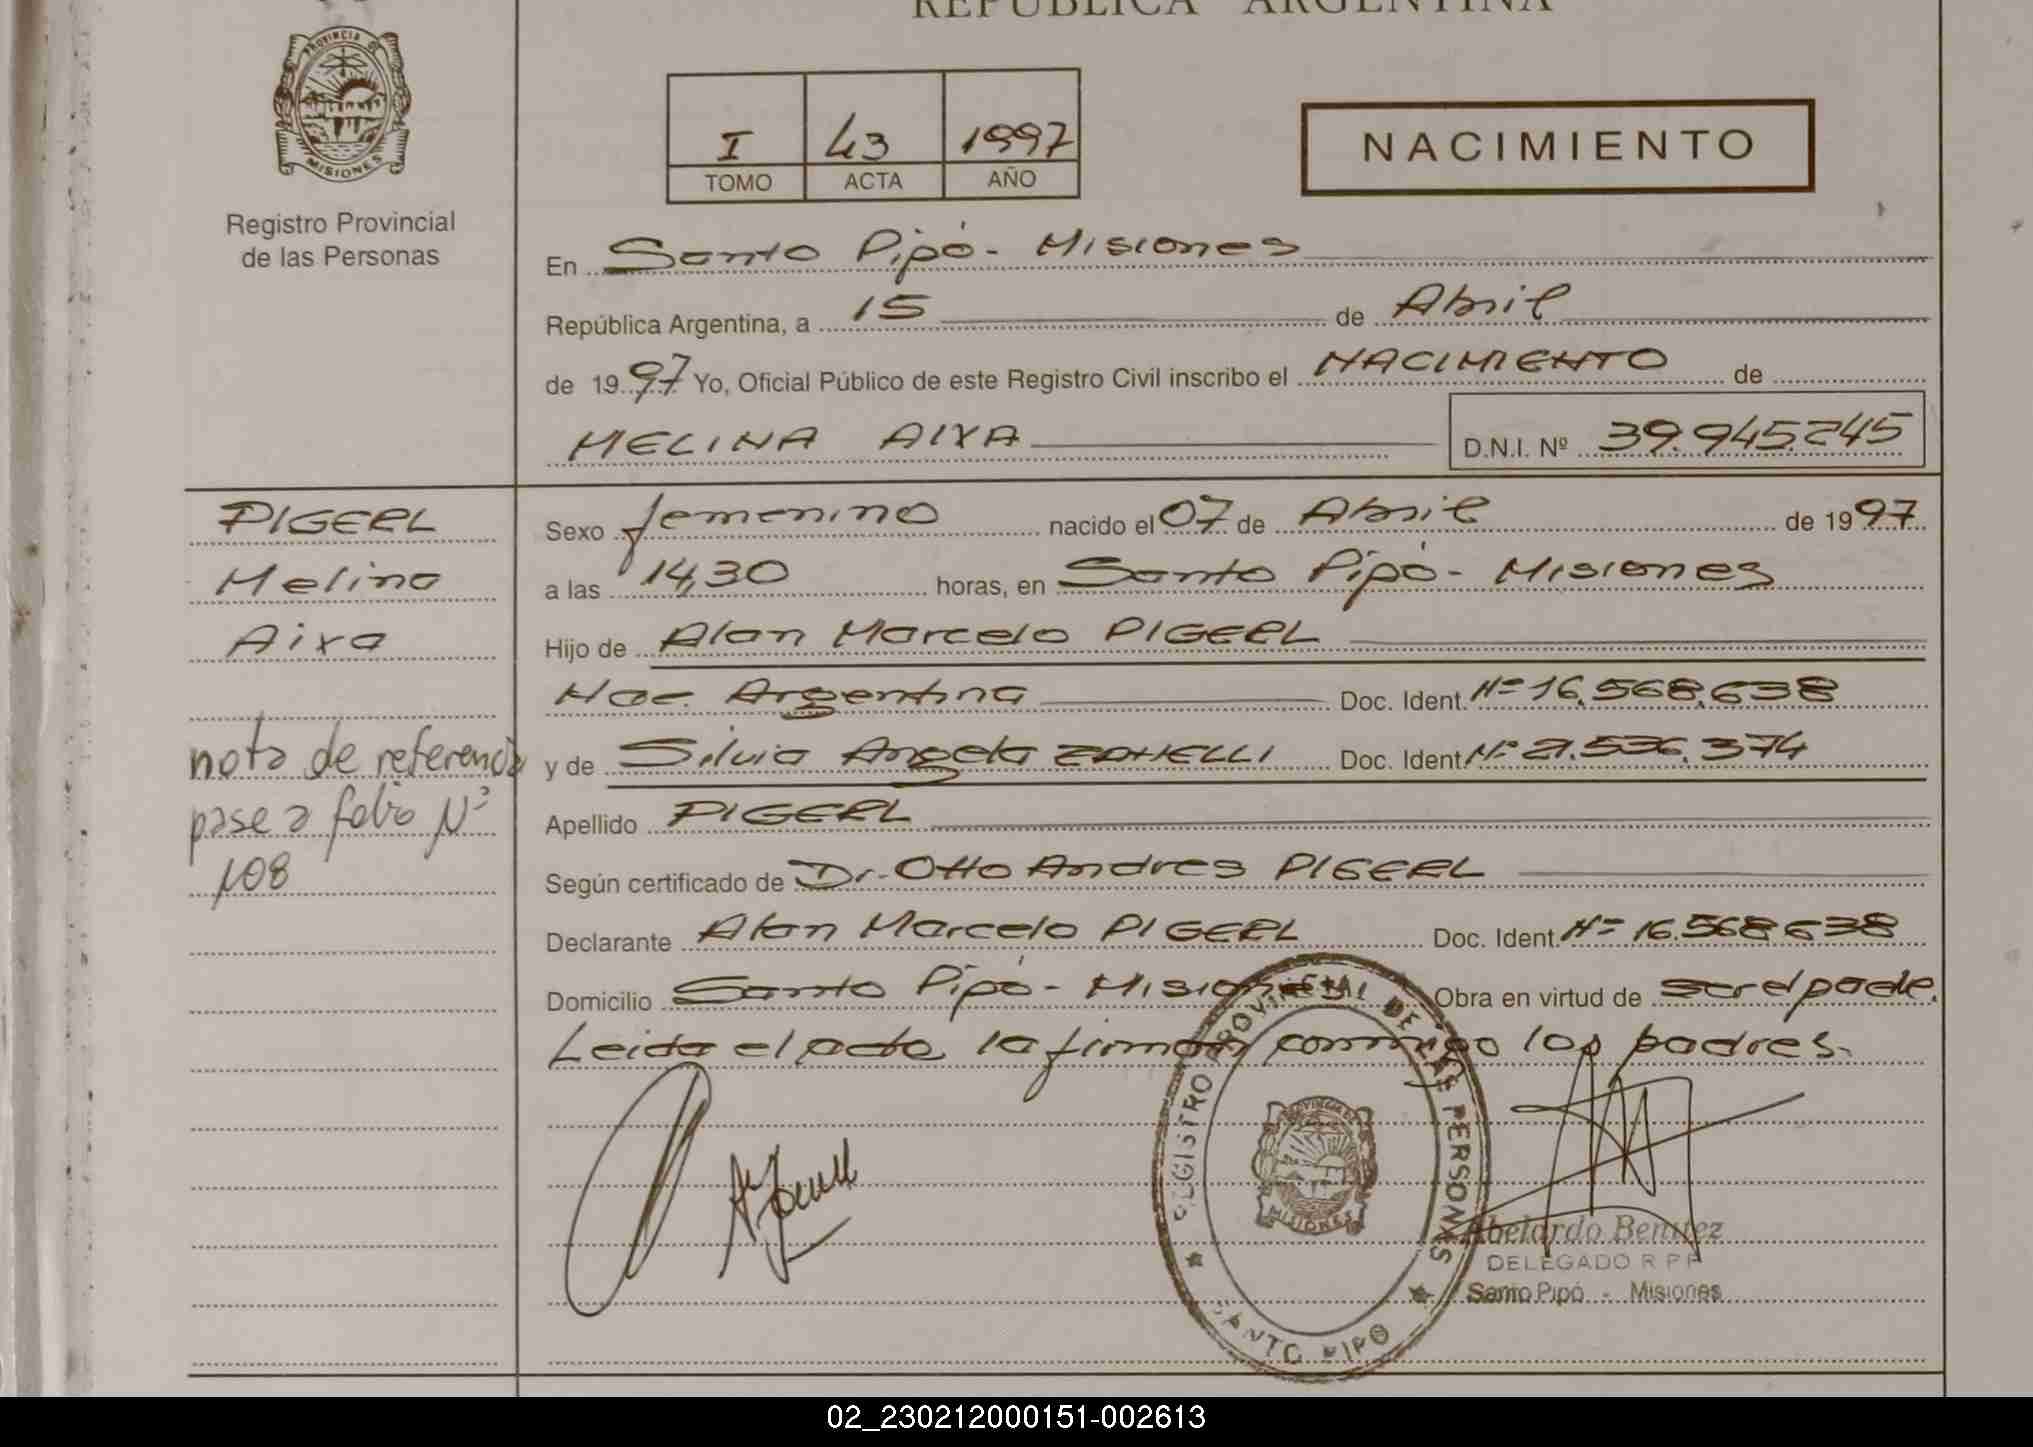 REPUBLICA ARGENTINA
PROVINCIA DE
MISIONES
Registro Provincial
de las Personas
I 43 1997
TOMO ACTA AÑO
NACIMIENTO
En Santo Pipó - Misiones
República Argentina, a 15 de Abril
de 1997 Yo, Oficial Público de este Registro Civil inscribo el NACIMIENTO de
MELINA AIXA D.N.I. Nº 39.945.245
PIGERL
Melina
Aixa
nota de referencia
pase a folio Nº
108
Sexo femenino nacido el 07 de Abril de 1997
a las 14,30 horas, en Santo Pipó - Misiones
Hijo de Alan Marcelo PIGERL
Nac. Argentina Doc. Ident. Nº 16.568.638
y de Silvia Angela ZANELLI Doc. Ident Nº 21.536.374
Apellido PIGERL
Según certificado de Dr. Otto Andres PIGERL
Declarante Alan Marcelo PIGERL Doc. Ident. Nº 16.568.638
Domicilio Santo Pipó - Misiones Obra en virtud de ser el padre.
Leida el acta, la firman conmigo los padres.
REGISTRO PROVINCIAL DE LAS PERSONAS
SANTO PIPÓ
MISIONES
Abelardo Benitez
DELEGADO R P P
Santo Pipó - Misiones
02_230212000151-002613